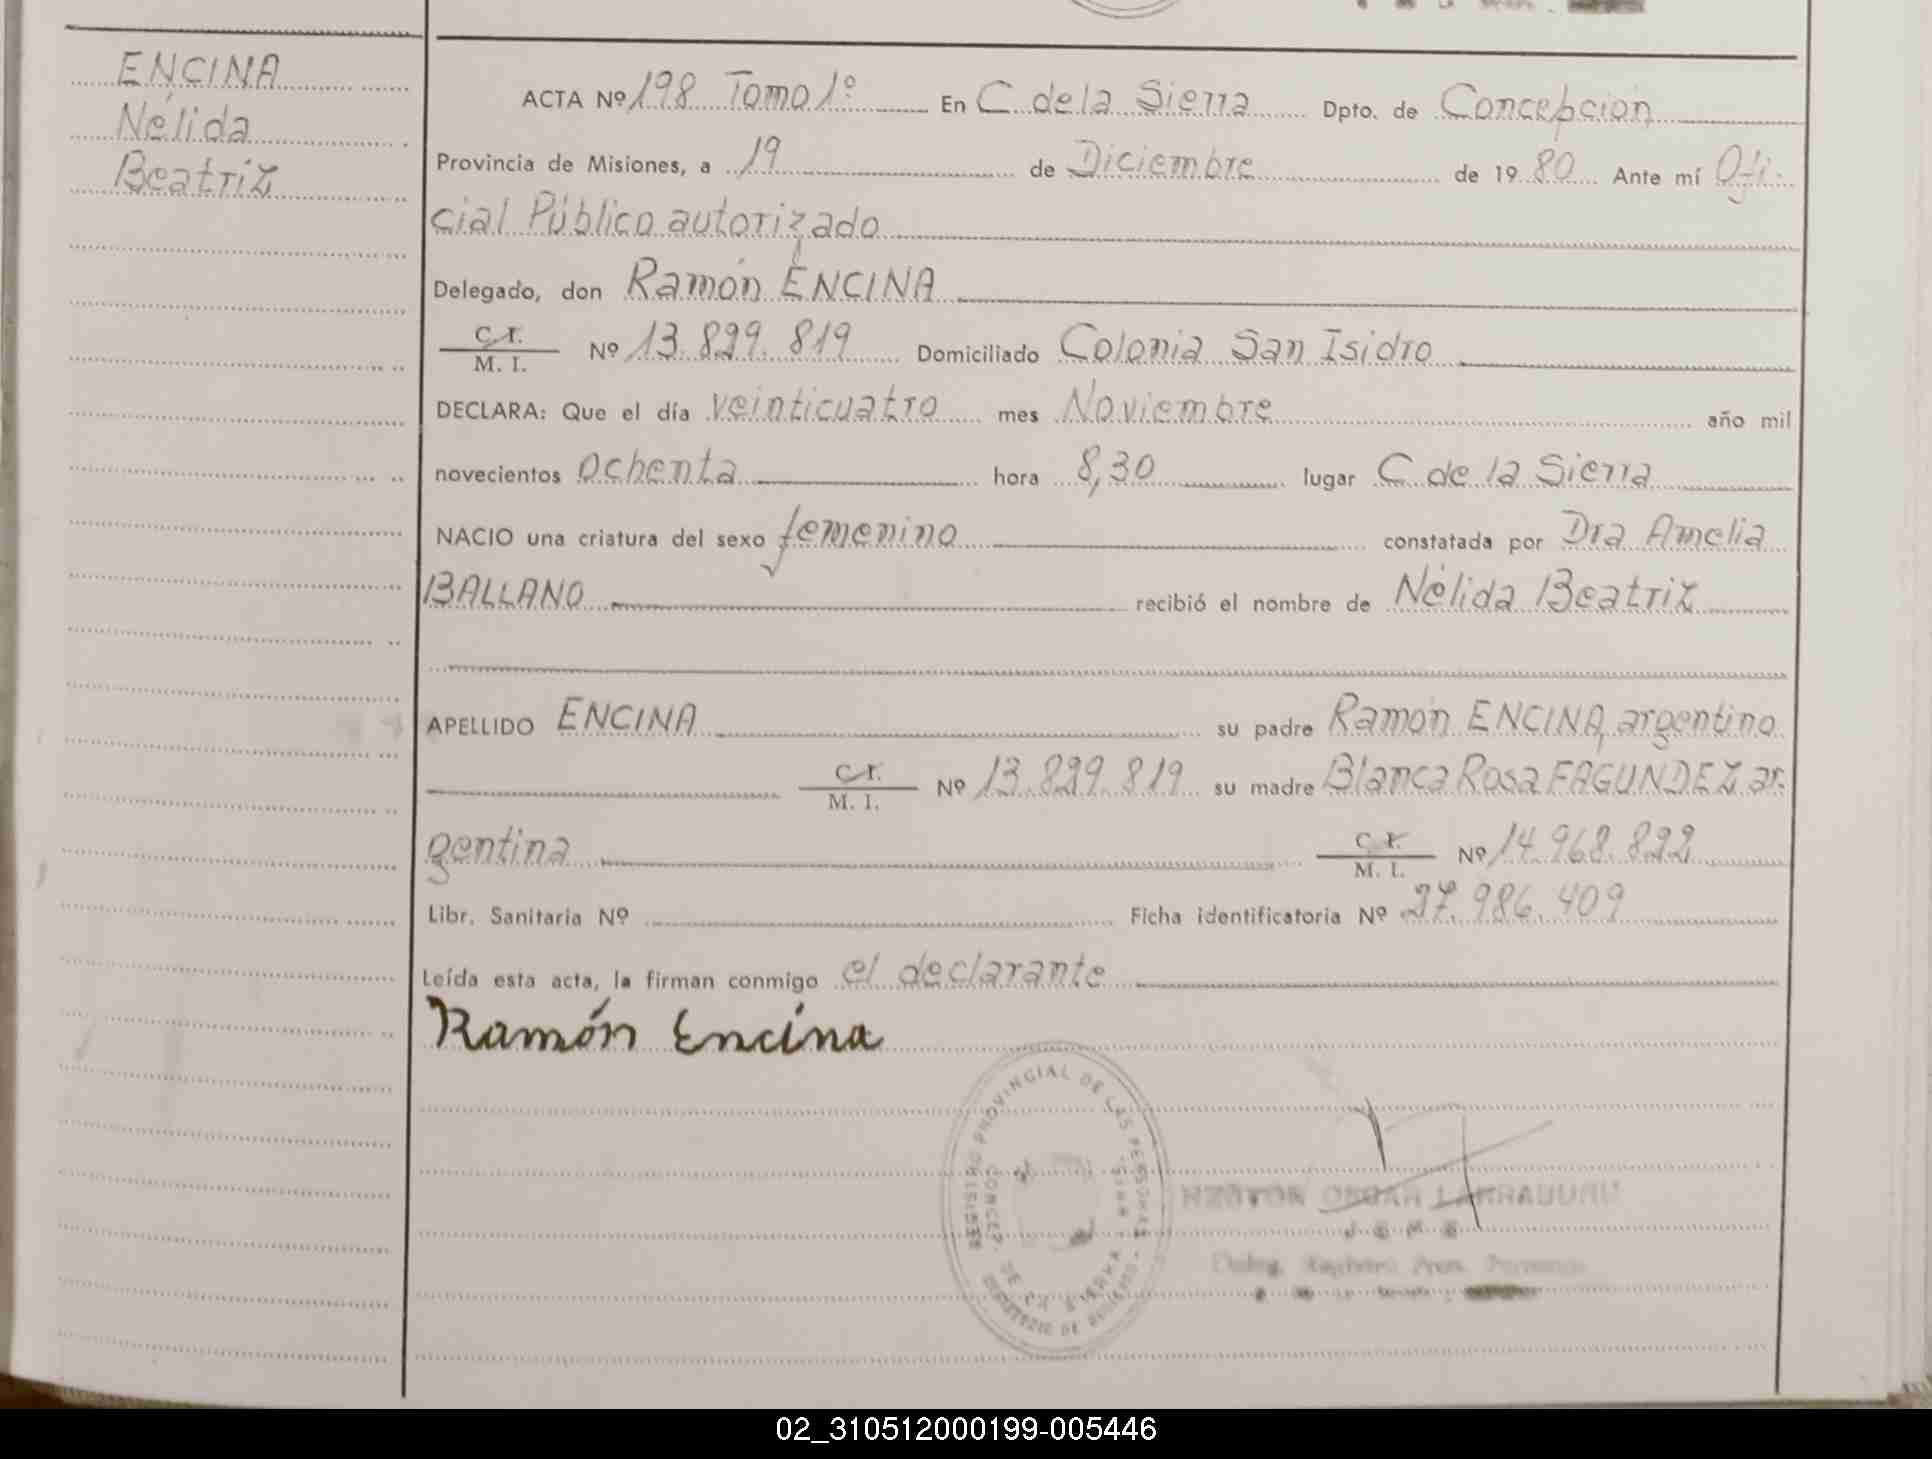 ENCINA
Nélida
Beatriz
ACTA Nº 198 Tomo 1º En C. de la Sierra Dpto. de Concepción
Provincia de Misiones, a 19 de Diciembre de 1980 Ante mí Ofi-
cial Público autorizado
Delegado, don Ramón ENCINA
C. I.
M. I. Nº 13.829.819 Domiciliado Colonia San Isidro
DECLARA: Que el día veinticuatro mes Noviembre año mil
novecientos ochenta hora 8,30 lugar C. de la Sierra
NACIO una criatura del sexo femenino constatada por Dra Amelia
BALLANO recibió el nombre de Nélida Beatriz
APELLIDO ENCINA su padre Ramón ENCINA, argentino
C. I.
M. I. Nº 13.829.819 su madre Blanca Rosa FAGUNDEZ ar-
gentina C. I.
M. I. Nº 14.968.822
Libr. Sanitaria Nº Ficha identificatoria Nº 27.986.409
Leída esta acta, la firman conmigo el declarante
Ramón Encina
REGISTRO PROVINCIAL DE LAS PERSONAS
CONCEP. DE LA SIERRA
HECTOR OSCAR LARRABURU
JEFE
02_310512000199-005446